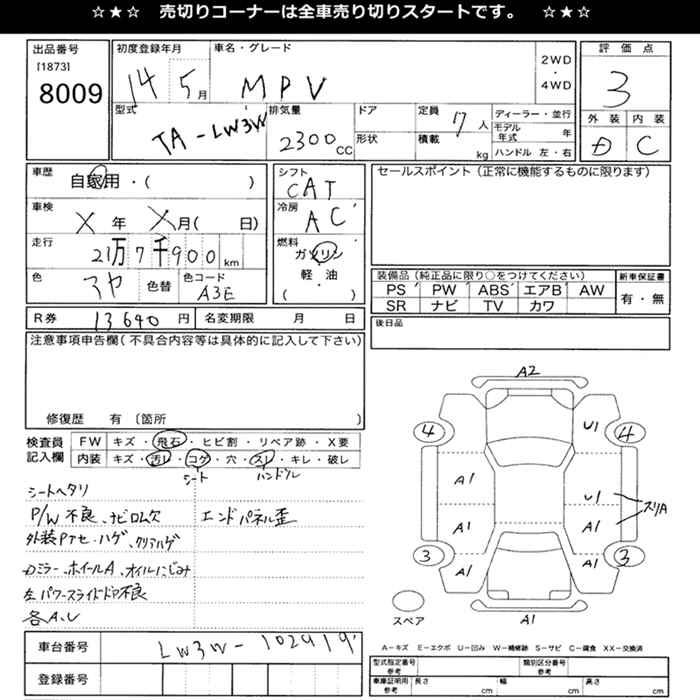 ☆★☆ 売切りコーナーは全車売り切りスタートです。 ☆★☆
出品番号 [1873] 8009
初度登録年月 14 5月
車名・グレード MPV
2WD・4WD
評価点 3
外装 D 内装 C
型式 TA-LW3W
排気量 2300 CC
ドア
形状
定員 7人
積載 kg
ディーラー・並行
モデル年式 年
ハンドル 左・右
車歴 自家用・( )
シフト CAT
セールスポイント(正常に機能するものに限ります)
車検 X年 X月( 日)
冷房 AC
走行 21万7千900km
燃料 ガソリン 軽油 ・ ( )
色 色替 色コード A3E
装備品(純品に限り○をつけてください) 新車保証書
PS PW ABS エアB AW 有・無
SR ナビ TV カワ
R券 13640円 名変期限 月 日
後日品
注意事項申告欄(不具合内容等は具体的に記入して下さい)
修復歴 有 〔箇所 〕
検査員記入欄 FW キズ・飛石・ヒビ割・リペア跡・X要
内装 キズ・汚レ・コゲ・穴・スレ・キレ・破レ
シート ハンドル
シートヘタリ
P/W不良、ナビロム欠 エンドパネル歪
外装Pアセ・ハゲ、クリアハゲ
Dミラー、ホイールA、オイルにじみ
左パワースライドドア不良
各A.U
車台番号 LW3W-102919
登録番号
A2
4 U1 4
A1 U1 スリA
A1 A1
3 A1 A1 3
スペア A1
A-キズ E-エクボ U-凹み W-補修跡 S-サビ C-腐食 XX-交換済
型式指定番号 参考 類別区分番号 参考
車庫証明用 参考 長さ cm 幅 cm 高さ cm